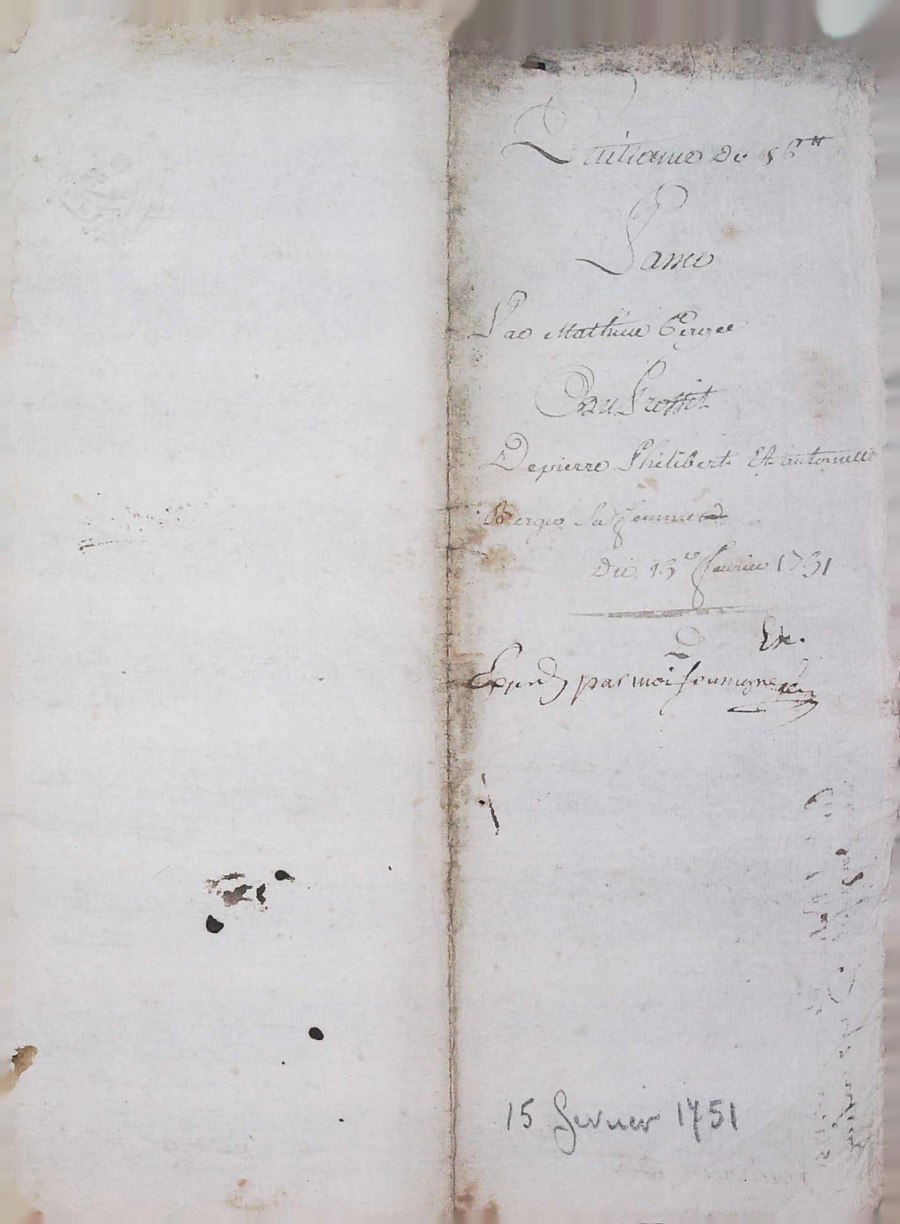 Quittance de 56 ₶
Passé
Par Mathieu Berger
Au Proffit
De pierre Philibert Et antoinette
Berger Sa femme
Du 15e feurier 1751
Et.
Exped par moi soussigné
15 fevrier 1751